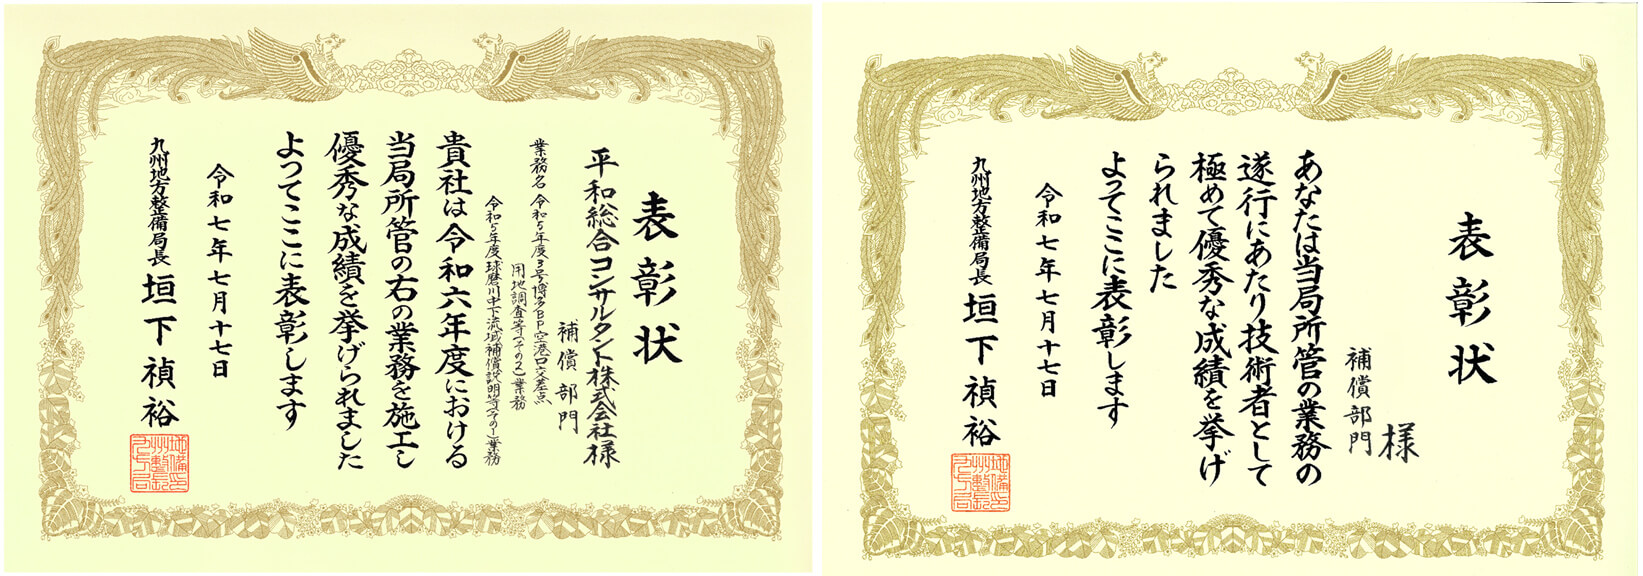 表彰状
平和総合コンサルタント株式会社様
補償部門
業務名 令和5年度3号博多BP空港口交差点
用地調査等(その2)業務
令和5年度球磨川中下流域補償説明等(その1)業務
貴社は令和六年度における
当局所管の右の業務を施工し
優秀な成績を挙げられました
よってここに表彰します
令和七年七月十七日
九州地方整備局長 垣下禎裕
表彰状
様
補償部門
あなたは当局所管の業務の
遂行にあたり技術者として
極めて優秀な成績を挙げ
られました
よってここに表彰します
令和七年七月十七日
九州地方整備局長 垣下禎裕